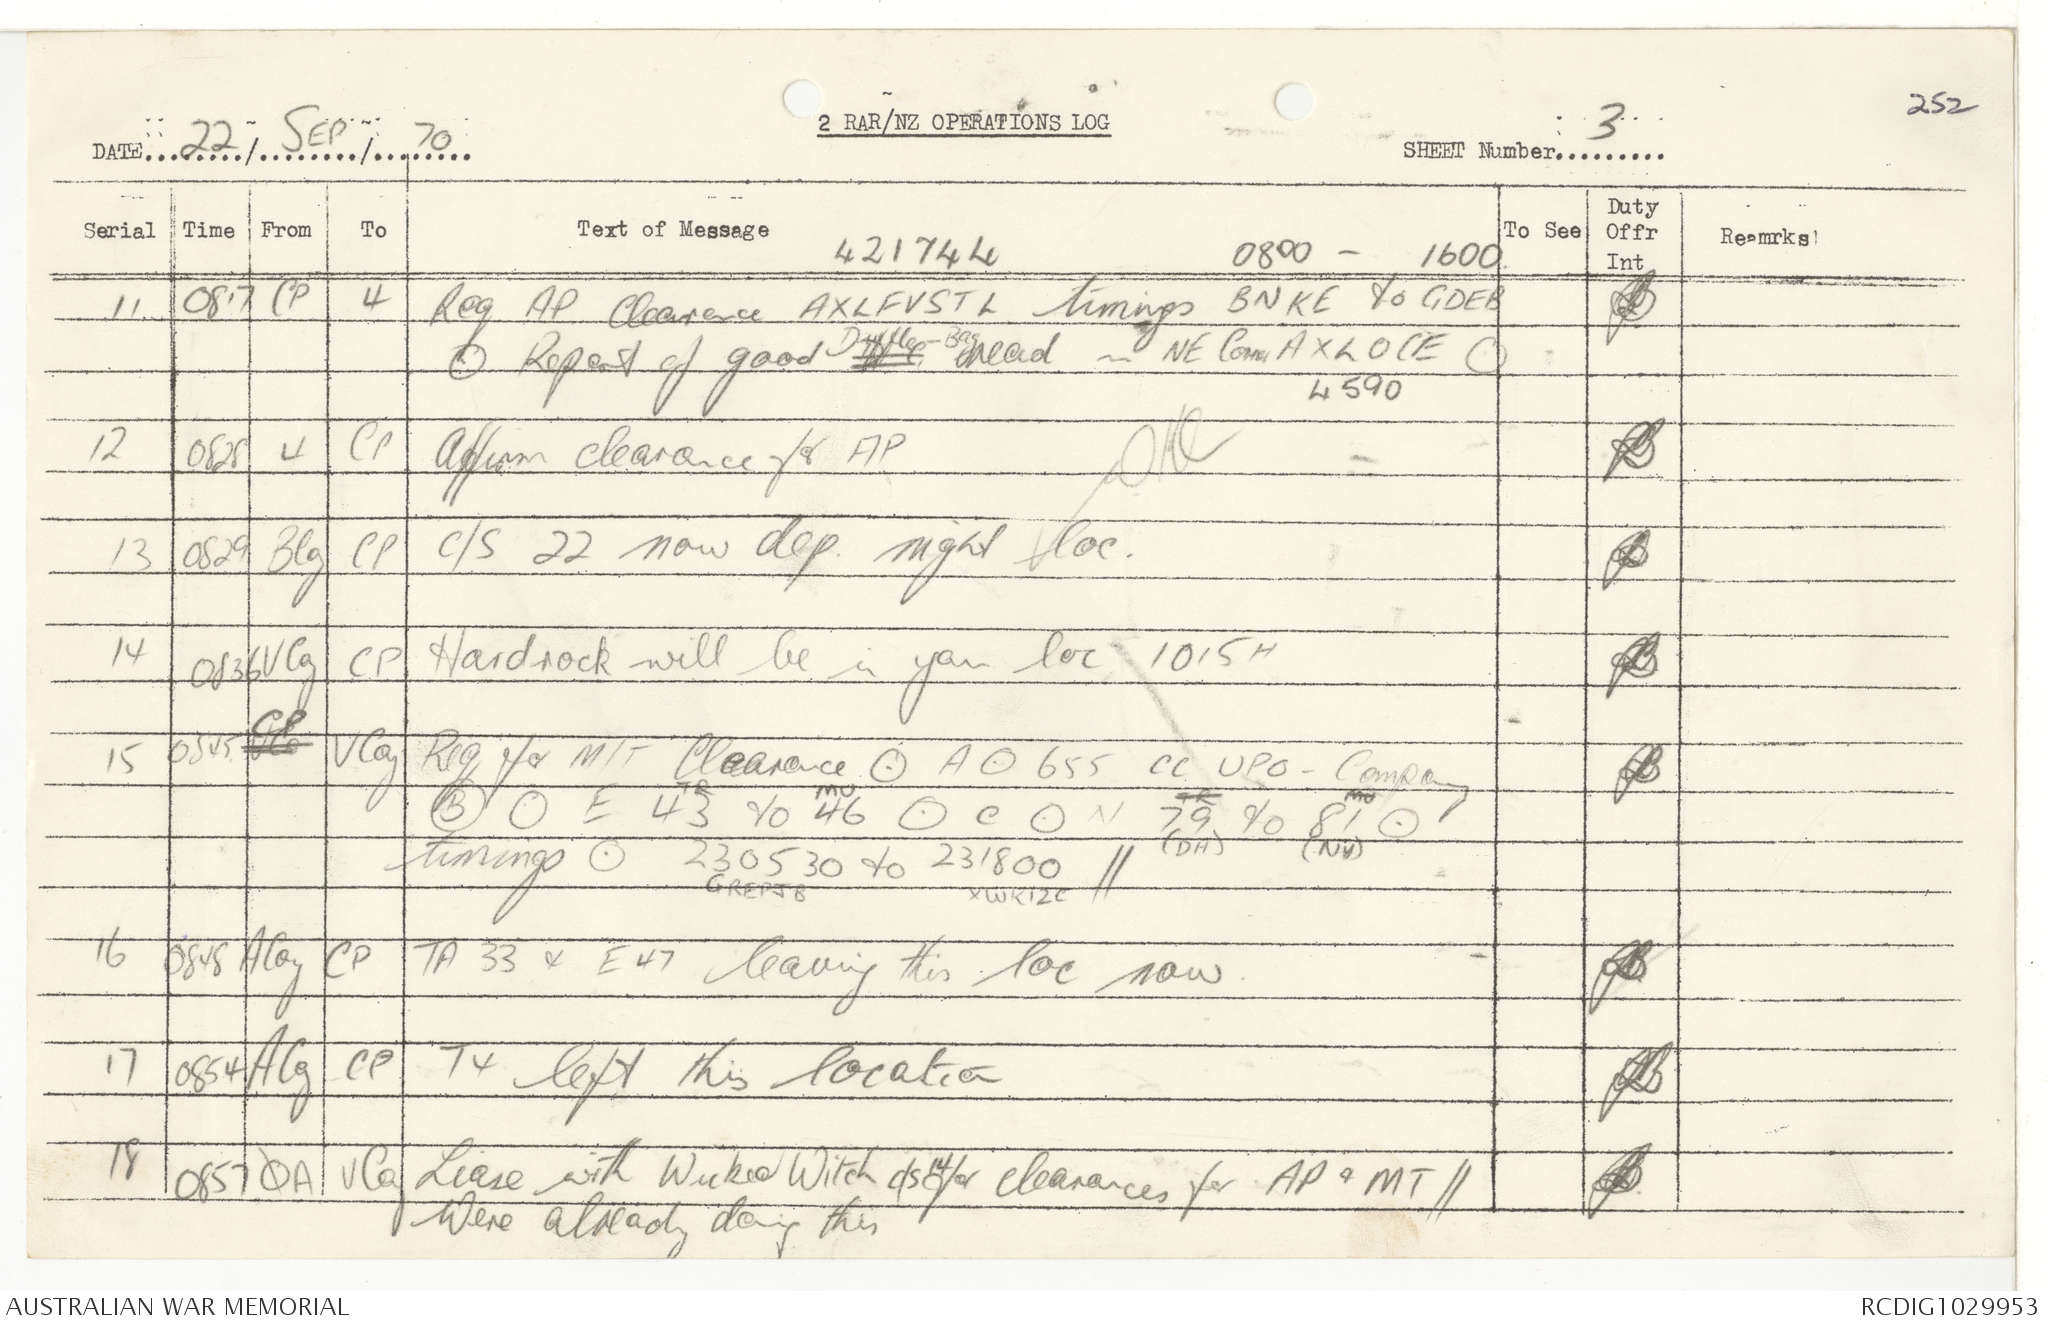 252
2 RAR/NZ OPERATIONS LOG
DATE 22 / SEP / 70
SHEET Number 3
Serial Time From To Text of Message To See Duty Offr Int Reamrks
421744 0800 - 1600
11 0817 CP 4 Req AP Clearance AXLFVSTL timings BNKE to GDEB
Report of good Duffle-Bag read in NE Corner AXLOCE
4590
12 0828 4 CP Affirm clearance for AP
13 0829 Blg CP C/S 22 now dep. night loc.
14 0836 VCoy CP Hardrock will be in your loc 1015H
15 0845 CP VCoy Req for M/T Clearance A 655 CC UPO - Company
TR MU TR MU
B E 43 to 46 C N 79 to 81
(DH) (NV)
timings 230530 to 231800 //
GREPJB XWKIZC
16 0848 ACoy CP TA 33 & E47 leaving this loc now
17 0854 ACoy CP T4 left this location
18 0857 OA VCoy Liase with Wicked Witch c/s for clearances for AP & MT //
Were already doing this
AUSTRALIAN WAR MEMORIAL
RCDIG1029953